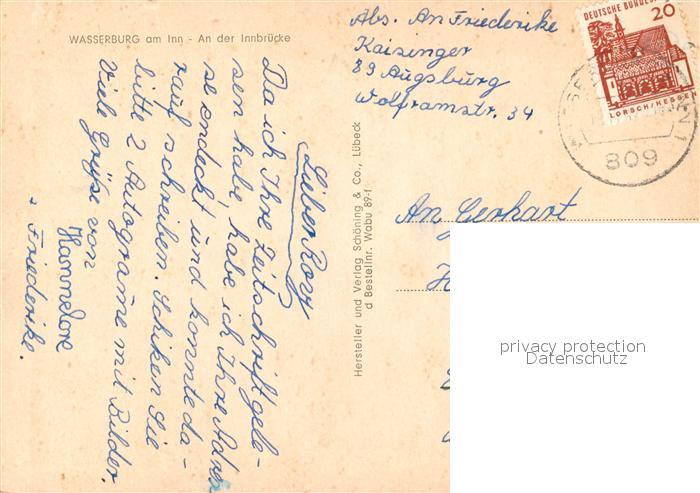 WASSERBURG am Inn - An der Innbrücke
Abs. An Friederike
Kaisinger
89 Augsburg
Wolframstr. 34
DEUTSCHE BUNDESPOST
20
LORSCH/HESSEN
809
Lieber Roy
Da ich Ihre Zeitschrift gele-
sen habe, habe ich Ihre Adres
se endeckt und konnte da-
rauf schreiben. Schiken Sie
bitte 2 Autograme mit Bilder.
Viele Grüße von
Hannelore
u Friederike.
Hersteller und Verlag Schöning & Co., Lübeck
d Bestellnr. Wabu 89-1
An Gerhart
privacy protection
Datenschutz